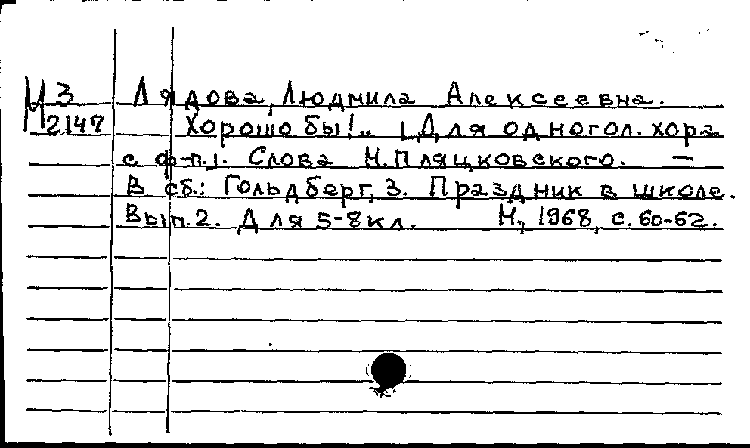 М 3 Лядова, Людмила Алексеевна.
2147 Хорошо бы!.. [Для одногол. хора
с ф-п.]. Слова М. Пляцковского. —
В сб.: Гольдберг, З. Праздник в школе.
Вып. 2. Для 5-8 кл. М., 1968, с. 60-62.